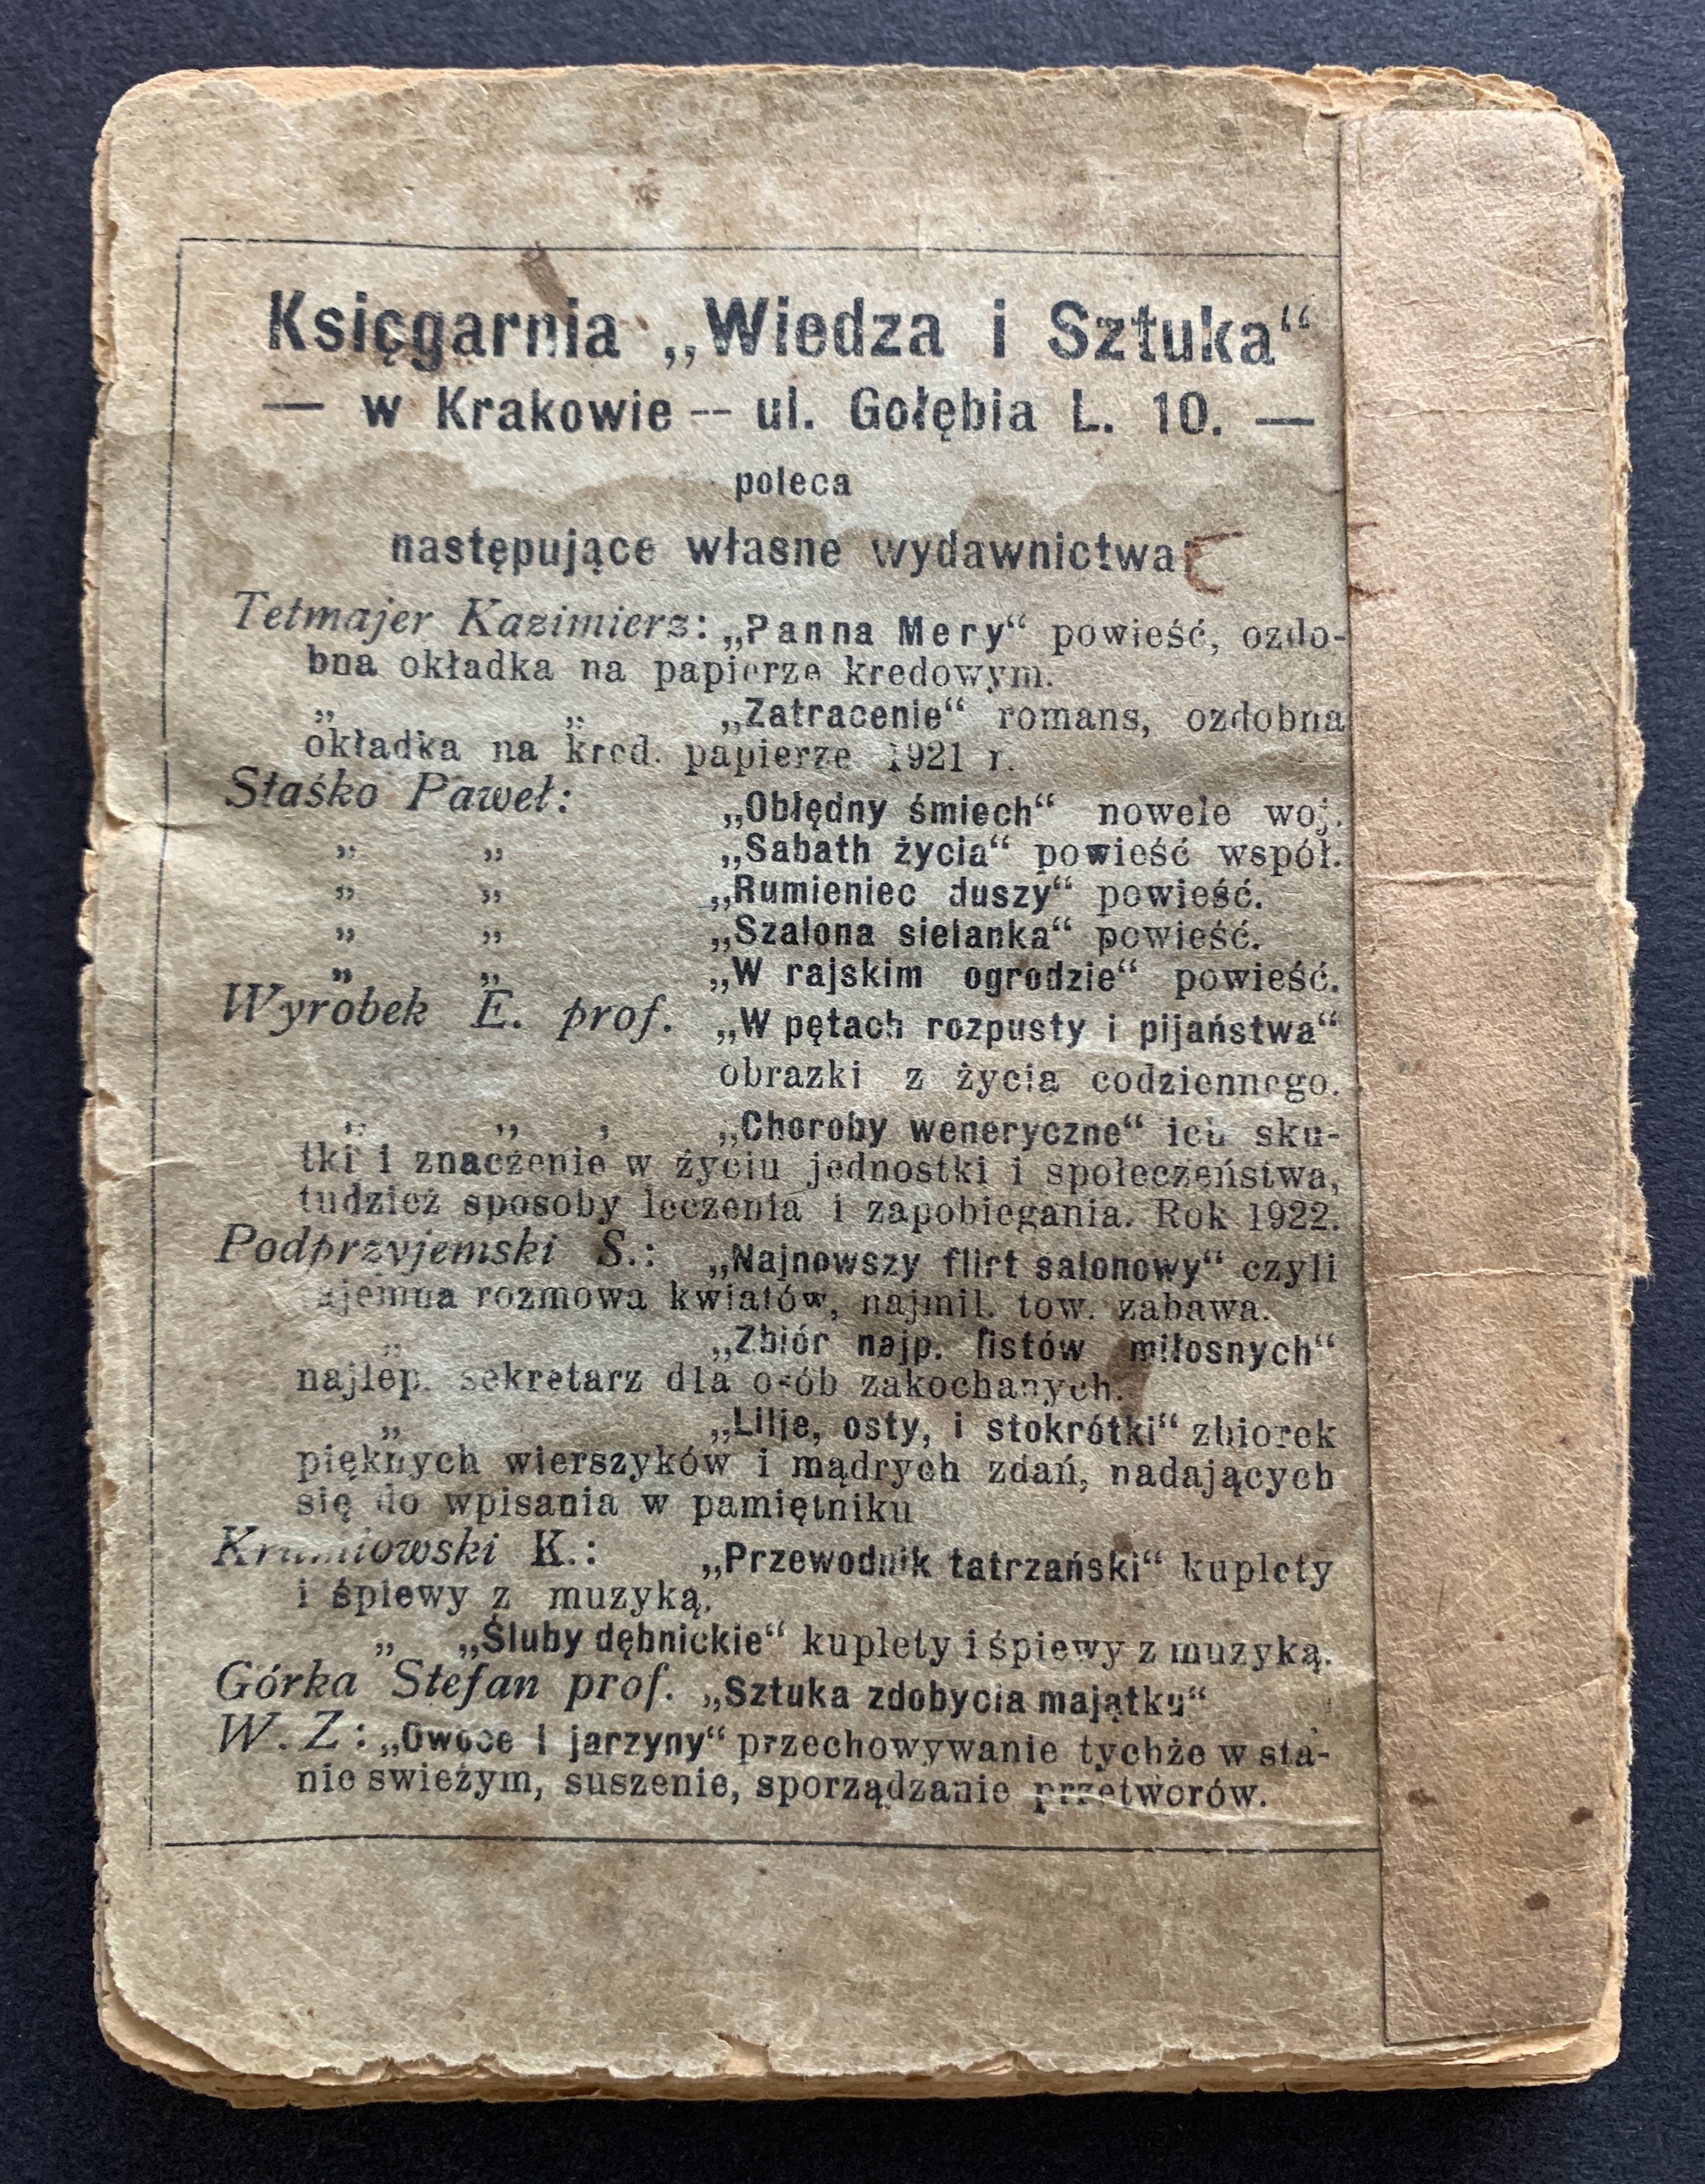 Księgarnia „Wiedza i Sztuka“
— w Krakowie -- ul. Gołębia L. 10. —
poleca
następujące własne wydawnictwa
Tetmajer Kazimierz: „Panna Mery“ powieść, ozdo-
bna okładka na papierze kredowym.
„ „ „Zatracenie“ romans, ozdobna
okładka na kred. papierze 1921 r.
Staśko Paweł: „Obłędny śmiech“ nowele woj.
„ „ „Sabath życia“ powieść współ.
„ „ „Rumieniec duszy“ powieść.
„ „ „Szalona sielanka“ powieść.
„ „ „W rajskim ogrodzie“ powieść.
Wyrobek E. prof. „W pętach rozpusty i pijaństwa“
obrazki z życia codziennego.
„ „ „ „Choroby weneryczne“ ich sku-
tki i znaczenie w życiu jednostki i społeczeństwa,
tudzież sposoby leczenia i zapobiegania. Rok 1922.
Podprzyjemski S.: „Najnowszy flirt salonowy“ czyli
rozmowa kwiatów, najmil. tow. zabawa.
„ „Zbiór najp. listów miłosnych“
najlep. sekretarz dla osób zakochanych.
„ „Lilje, osty, i stokrótki“ zbiorek
pięknych wierszyków i mądrych zdań, nadających
się do wpisania w pamiętniku
K.: „Przewodnik tatrzański“ kuplety
i śpiewy z muzyką.
„ „Śluby dębnickie“ kuplety i śpiewy z muzyką.
Górka Stefan prof. „Sztuka zdobycia majątku“
W. Z: „Owoce i jarzyny“ przechowywanie tychże w sta-
nie swieżym, suszenie, sporządzanie przetworów.